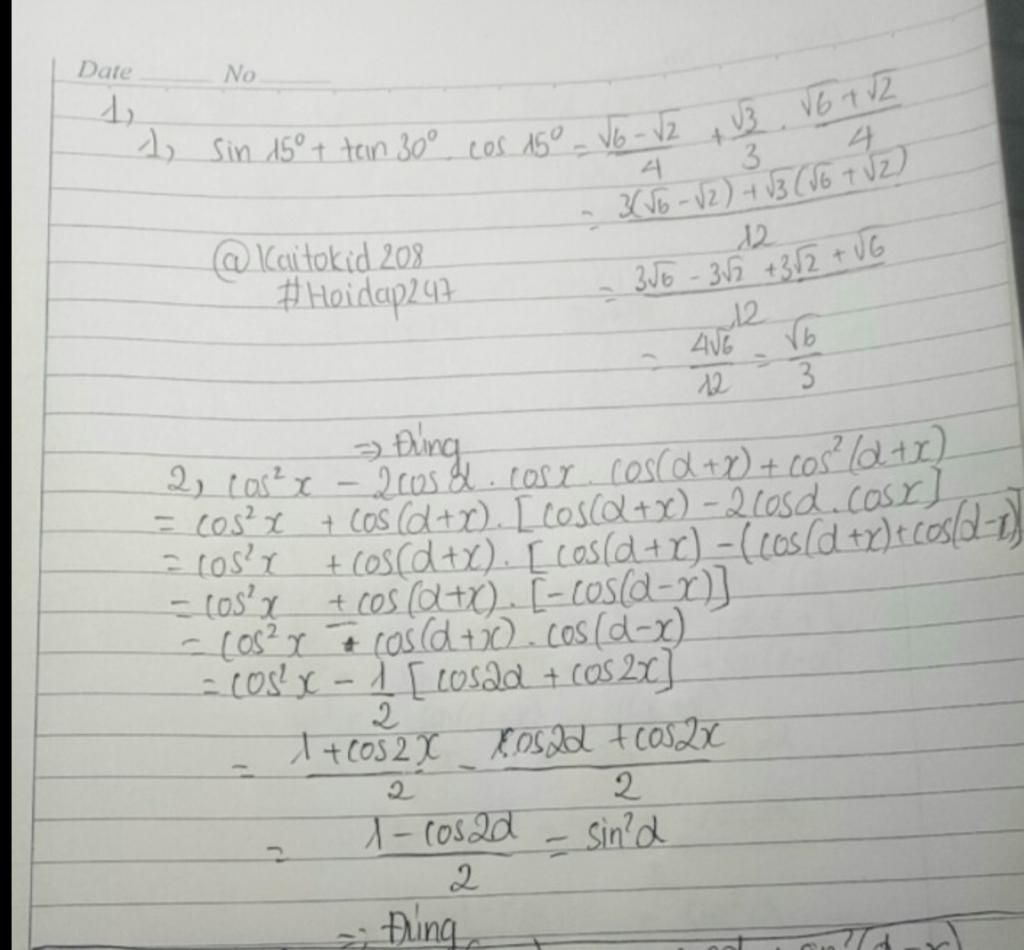 Date No
1,
1, sin 15° + tan 30° . cos 15° = (√6 - √2)/4 + √3/3 . (√6 + √2)/4
= (3(√6 - √2) + √3(√6 + √2))/12
@Kaitokid208
= (3√6 - 3√2 + 3√2 + √6)/12
#Hoidap247
= 4√6/12 = √6/3
=> Đúng
2, cos²x - 2cosα . cosx . cos(α+x) + cos²(α+x)
= cos²x + cos(α+x) . [cos(α+x) - 2cosα . cosx]
= cos²x + cos(α+x) . [cos(α+x) - (cos(α+x) + cos(α-x)]
= cos²x + cos(α+x) . [-cos(α-x)]
= cos²x - cos(α+x) . cos(α-x)
= cos²x - 1/2 [cos2α + cos2x]
= (1 + cos2x)/2 - (cos2α + cos2x)/2
= (1 - cos2α)/2 = sin²α
=> Đúng